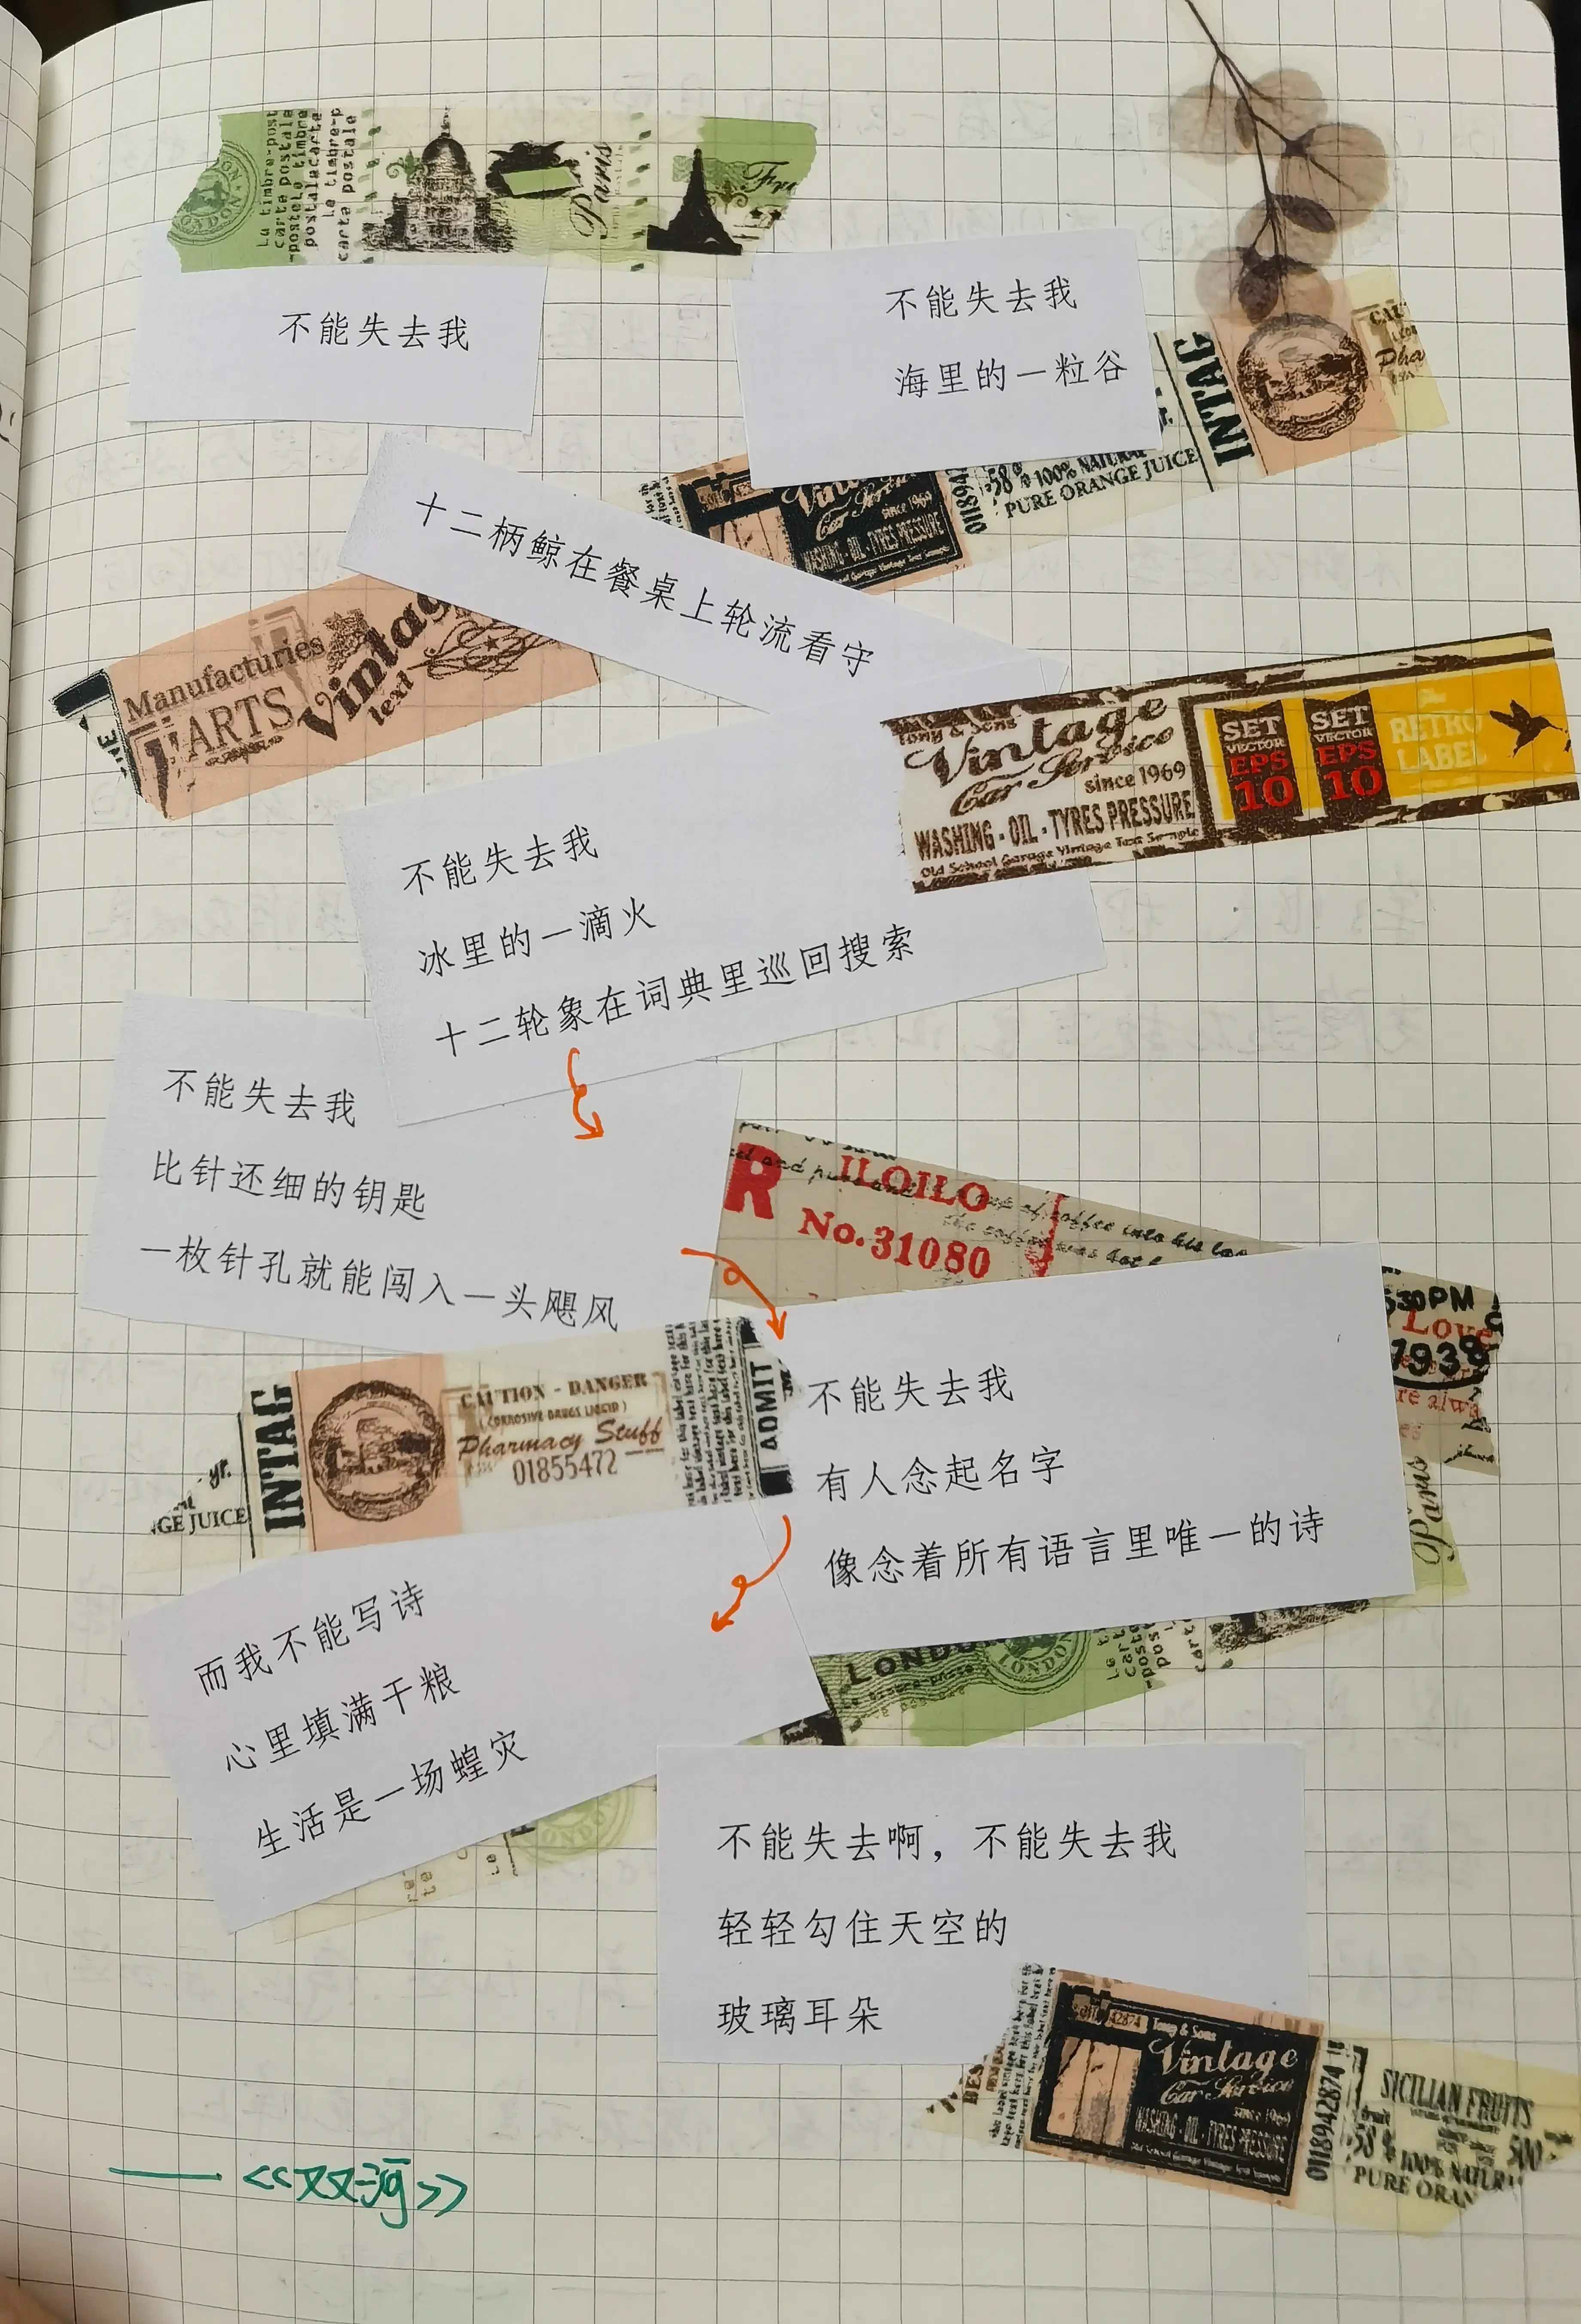 La timbre-post
carte postale
postalacarte
Le timbre-p
carte postale
LONDON
Paris
不能失去我
不能失去我
海里的一粒谷
INTAG
Vintage
Car Service
since 1969
WASHING - OIL - TYRES PRESSURE
58% 100% NATURAL
PURE ORANGE JUICE
十二柄鲸在餐桌上轮流看守
Manufacturies
ARTS
Vintag
text
Tony & Sons
Vintage
Car Service
since 1969
WASHING - OIL - TYRES PRESSURE
Old School Garage Vintage Text Sample
SET
VECTOR
EPS
10
SET
VECTOR
EPS
10
RETRO
LABEL
不能失去我
冰里的一滴火
十二轮象在词典里巡回搜索
不能失去我
比针还细的钥匙
一枚针孔就能闯入一头飓风
R
ILOILO
No. 31080
530PM
Love
1938
Paris
INTAG
GE JUICE
CAUTION - DANGER
(CORROSIVE DRUGS LIQUID)
Pharmacy Stuff
01855472
ADMIT
不能失去我
有人念起名字
像念着所有语言里唯一的诗
LONDON
而我不能写诗
心里填满干粮
生活是一场蝗灾
不能失去啊，不能失去我
轻轻勾住天空的
玻璃耳朵
42874 Tony & Sons
Vintage
Car Service
since 1969
WASHING - OIL - TYRES PRESSURE
0118942874
SICILIAN FRUITS
500
58% 100% NATURA
PURE ORAN
——《双河》